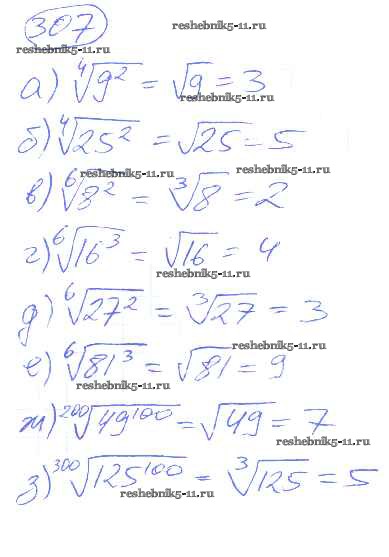 307
reshebnik5-11.ru
reshebnik5-11.ru
а) ⁴√9² = √9 = 3
reshebnik5-11.ru
б) ⁴√25² = √25 = 5
reshebnik5-11.ru
reshebnik5-11.ru
в) ⁶√8² = ³√8 = 2
г) ⁶√16³ = √16 = 4
reshebnik5-11.ru
д) ⁶√27² = ³√27 = 3
reshebnik5-11.ru
е) ⁶√81³ = √81 = 9
reshebnik5-11.ru
ж) ²⁰⁰√49¹⁰⁰ = √49 = 7
reshebnik5-11.ru
з) ³⁰⁰√125¹⁰⁰ = ³√125 = 5
reshebnik5-11.ru